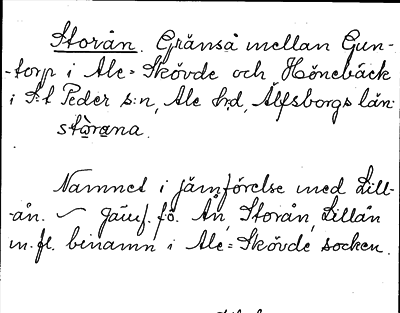 Storån. Gränså mellan Gun-
-torp i Ale-Skövde och Hönebäck
i S:t Peder s:n, Ale hrd, Älfsborgs län.
stòrana.
Namnet i jämförelse med Lill-
-ån. — Jämf. fö. Ån, Storån, Lillån
m.fl. binamn i Ale-Skövde socken.